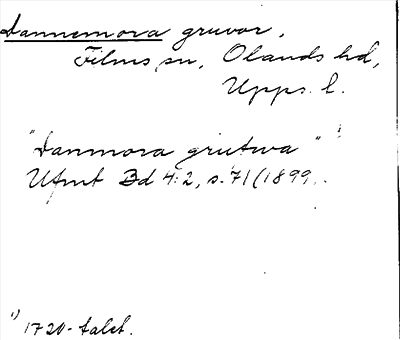 Dannemora gruvor,
Films sn, Olands hd,
Upps. l.
"Danmora grutwa" ¹
Ufmt Bd 4:2, s. 71 (1899.
¹) 1720-talet.